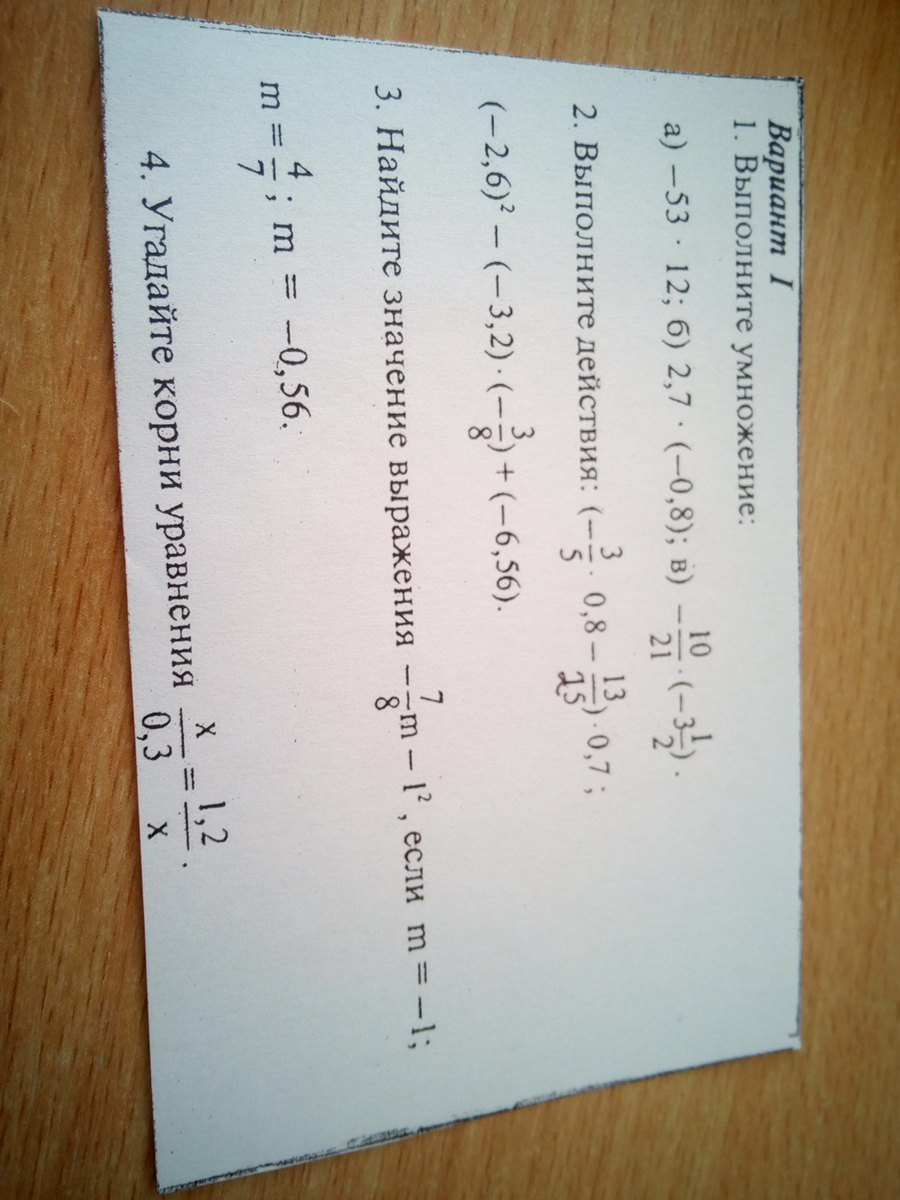 Вариант I
1. Выполните умножение:
а) −53 · 12; б) 2,7 · (−0,8); в) −10/21 · (−3 1/2).
2. Выполните действия: (−3/5 · 0,8 − 13/25) · 0,7;
(−2,6)² − (−3,2) · (−3/8) + (−6,56).
3. Найдите значение выражения −7/8 m − 1², если m = −1;
m = 4/7; m = −0,56.
4. Угадайте корни уравнения x/0,3 = 1,2/x.